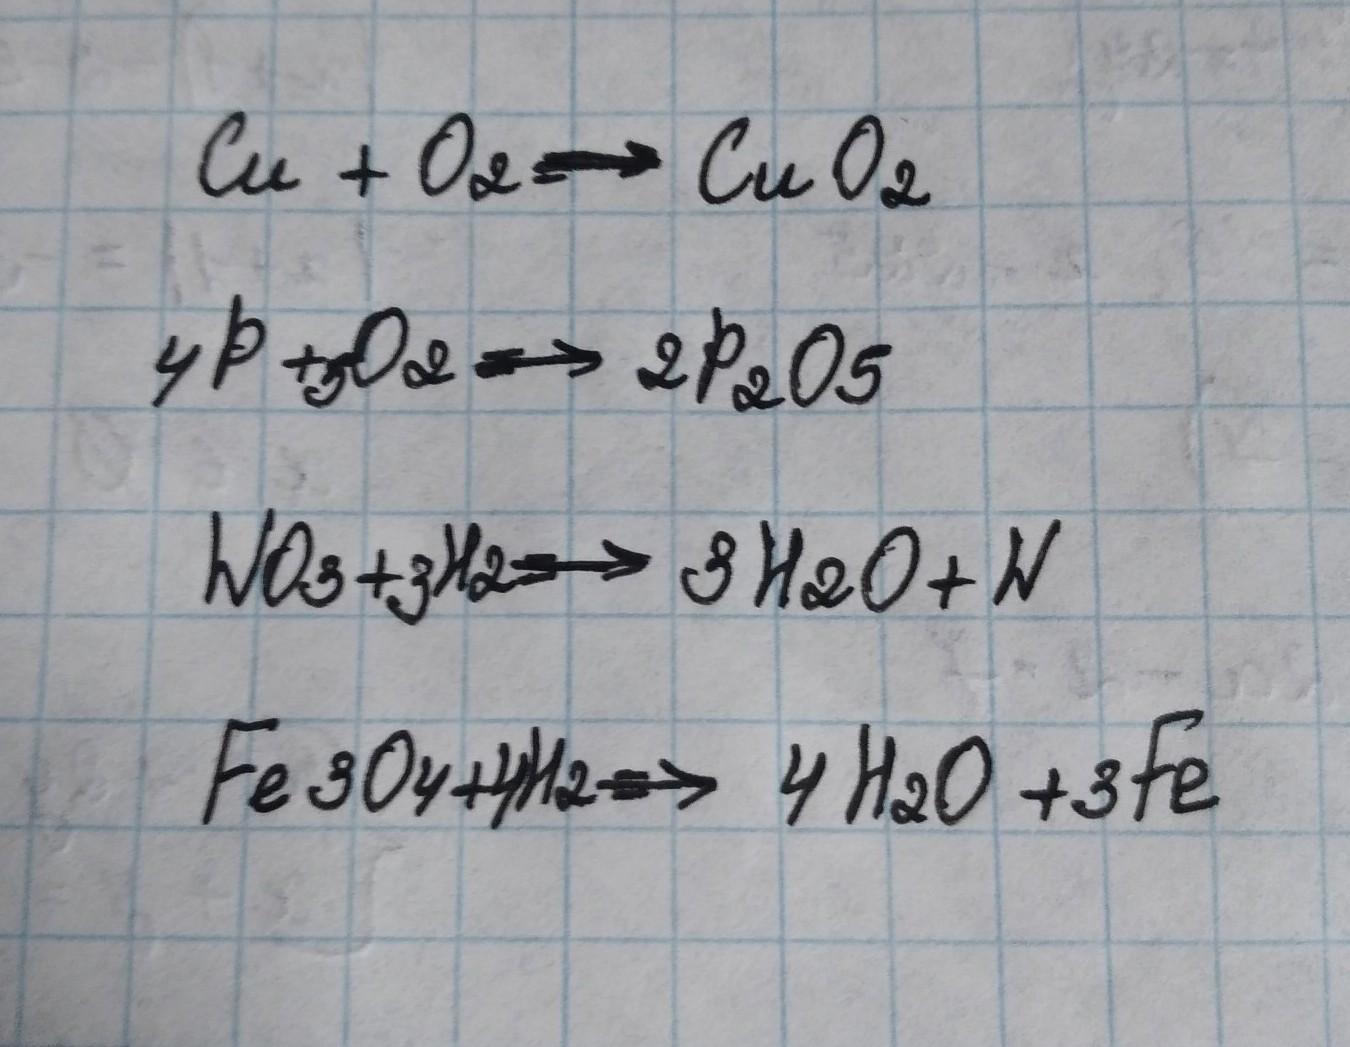 Cu + O2 → CuO2
4P +5O2 → 2P2O5
WO3+3H2 → 3H2O+W
Fe3O4+4H2 → 4H2O +3Fe